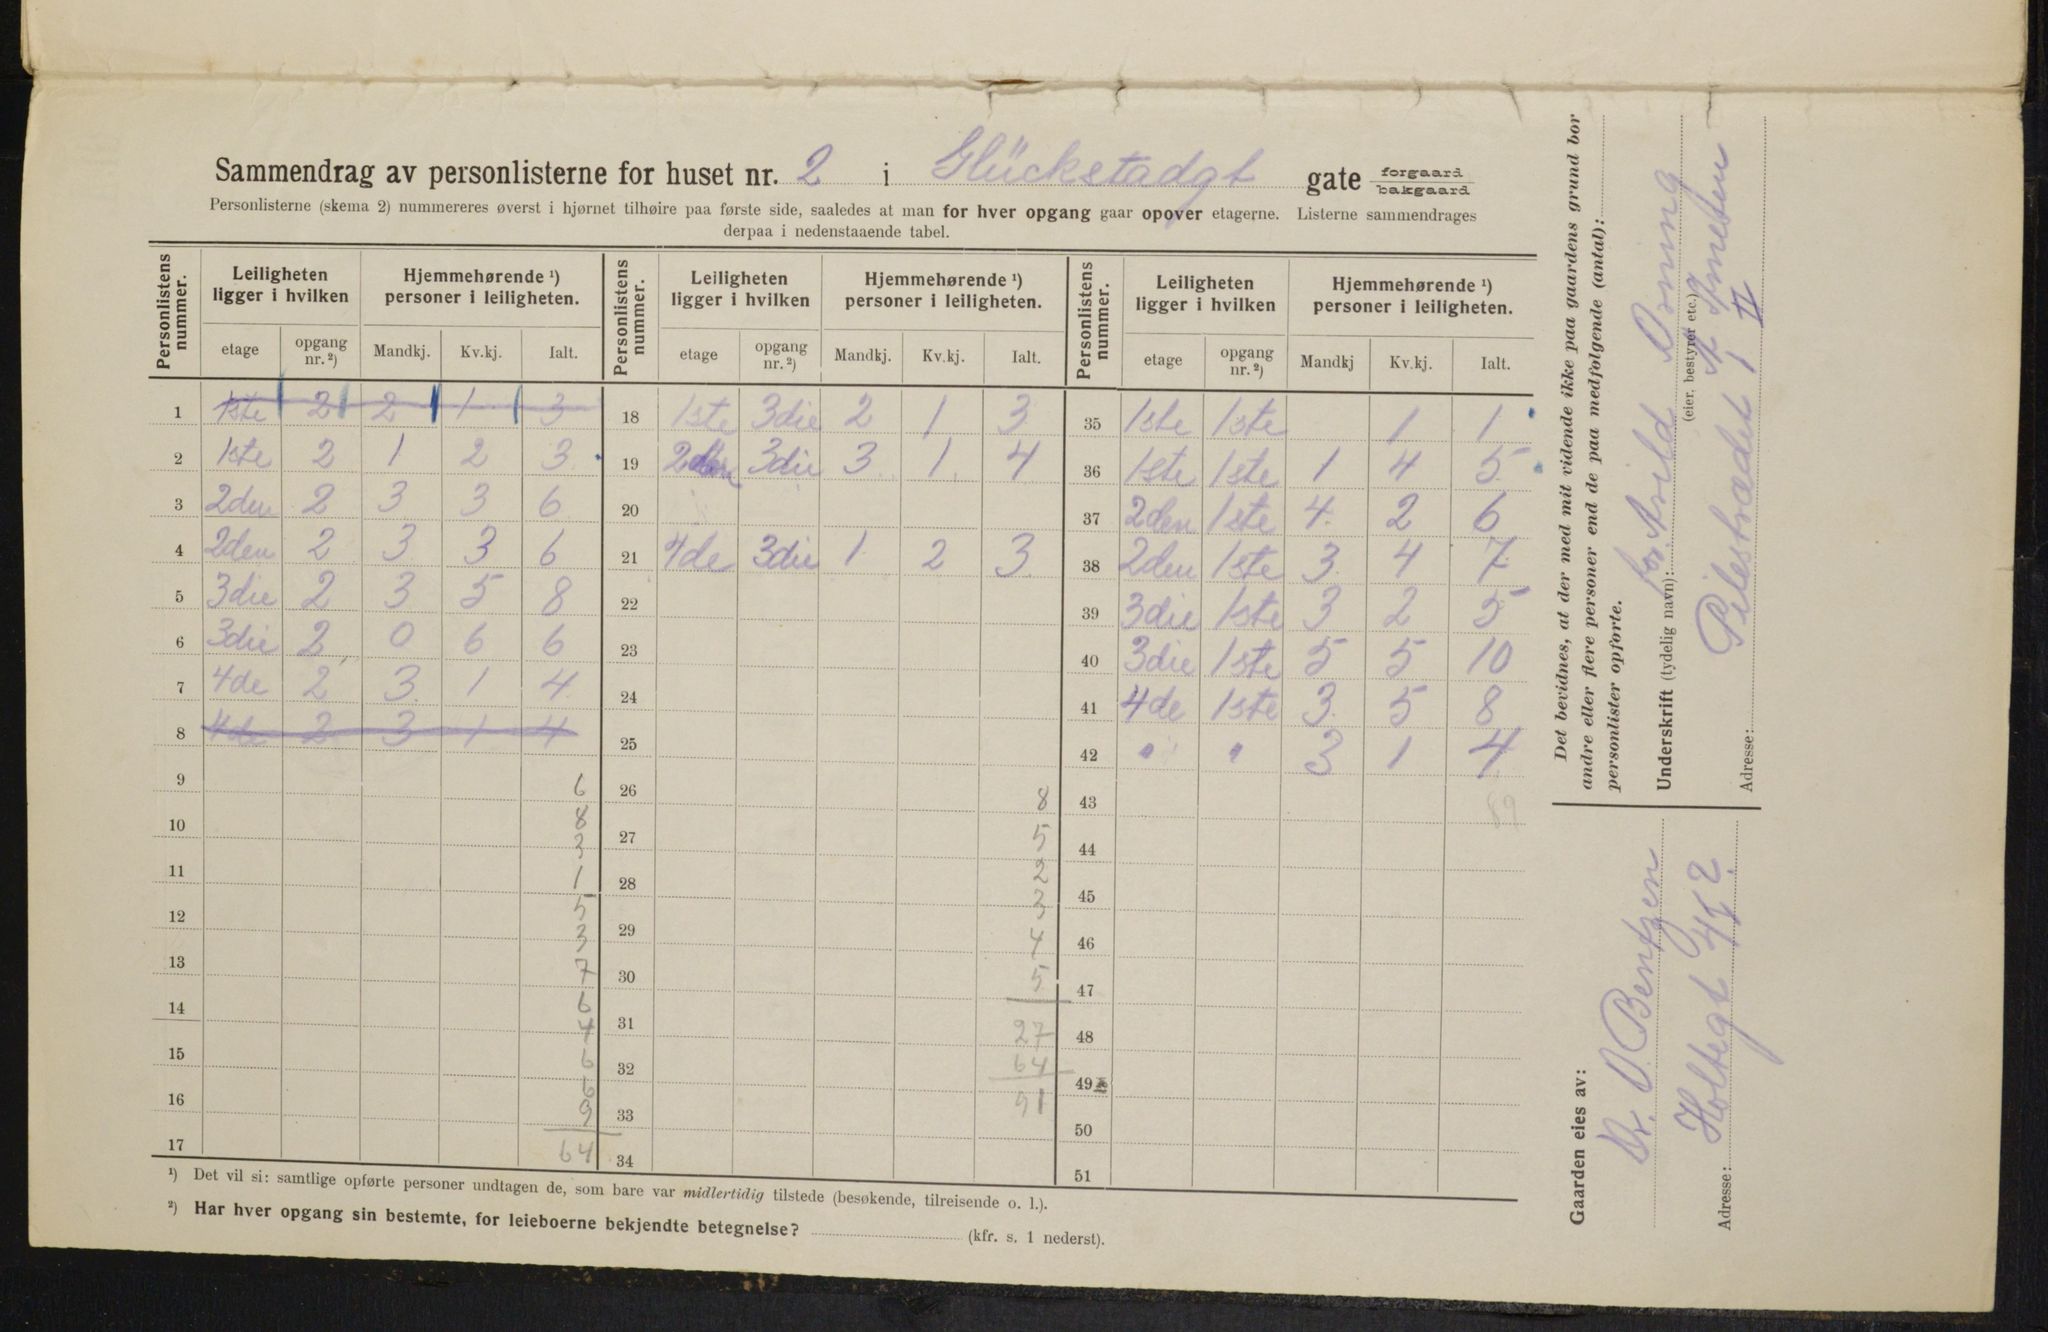 Sammendrag av personlisterne for huset nr. 2 i Glückstadgt gate forgaard bakgaard
Personlisterne (skema 2) nummereres øverst i hjørnet tilhøire paa første side, saaledes at man for hver opgang gaar opover etagerne. Listerne sammendrages
derpaa i nedenstaaende tabel.
Personlistens nummer. Leiligheten ligger i hvilken Hjemmehørende ¹) personer i leiligheten. Personlistens nummer. Leiligheten ligger i hvilken Hjemmehørende ¹) personer i leiligheten. Personlistens nummer. Leiligheten ligger i hvilken Hjemmehørende ¹) personer i leiligheten.
etage opgang nr. ²) Mandkj. Kv.kj. Ialt. etage opgang nr. ²) Mandkj. Kv.kj. Ialt. etage opgang nr. ²) Mandkj Kv.kj. Ialt.
1 1ste 2 2 1 3 18 1ste 3die 2 1 3 35 1ste 1ste 1 1
2 1ste 2 1 2 3 19 3die 3 1 4 36 1ste 1ste 1 4 5
3 2den 2 3 3 6 20 37 2den 1ste 4 2 6
4 2den 2 3 3 6 21 4de 3die 1 2 3 38 2den 1ste 3 4 7
5 3die 2 3 5 8 22 39 3die 1ste 3 2 5
6 3die 2 0 6 6 23 40 3die 1ste 5 5 10
7 4de 2 3 1 4 24 41 4de 1ste 3 5 8
8 4de 2 3 1 4 25 42 " " 3 1 4
9 6 26 8 43 89
10 8 27 5 44
3 2
11 1 28 3 45
12 5 29 4 46
3
13 7 30 5 47
14 6 31 27 48
4
15 6 32 64 49
16 6 33 91 50
9
17 64 34 51
¹) Det vil si: samtlige opførte personer undtagen de, som bare var midlertidig tilstede (besøkende, tilreisende o. l.).
²) Har hver opgang sin bestemte, for leieboerne bekjendte betegnelse? (kfr. s. 1 nederst).
Det bevidnes, at der med mit vidende ikke paa gaardens grund bor
andre eller flere personer end de paa medfølgende (antal):
personlister opførte.
Underskrift (tydelig navn): for Arild
(eier, bestyrer etc.)
Adresse: Pilestrædet
Gaarden eies av:
O. Bentzen
Adresse: Holtegt